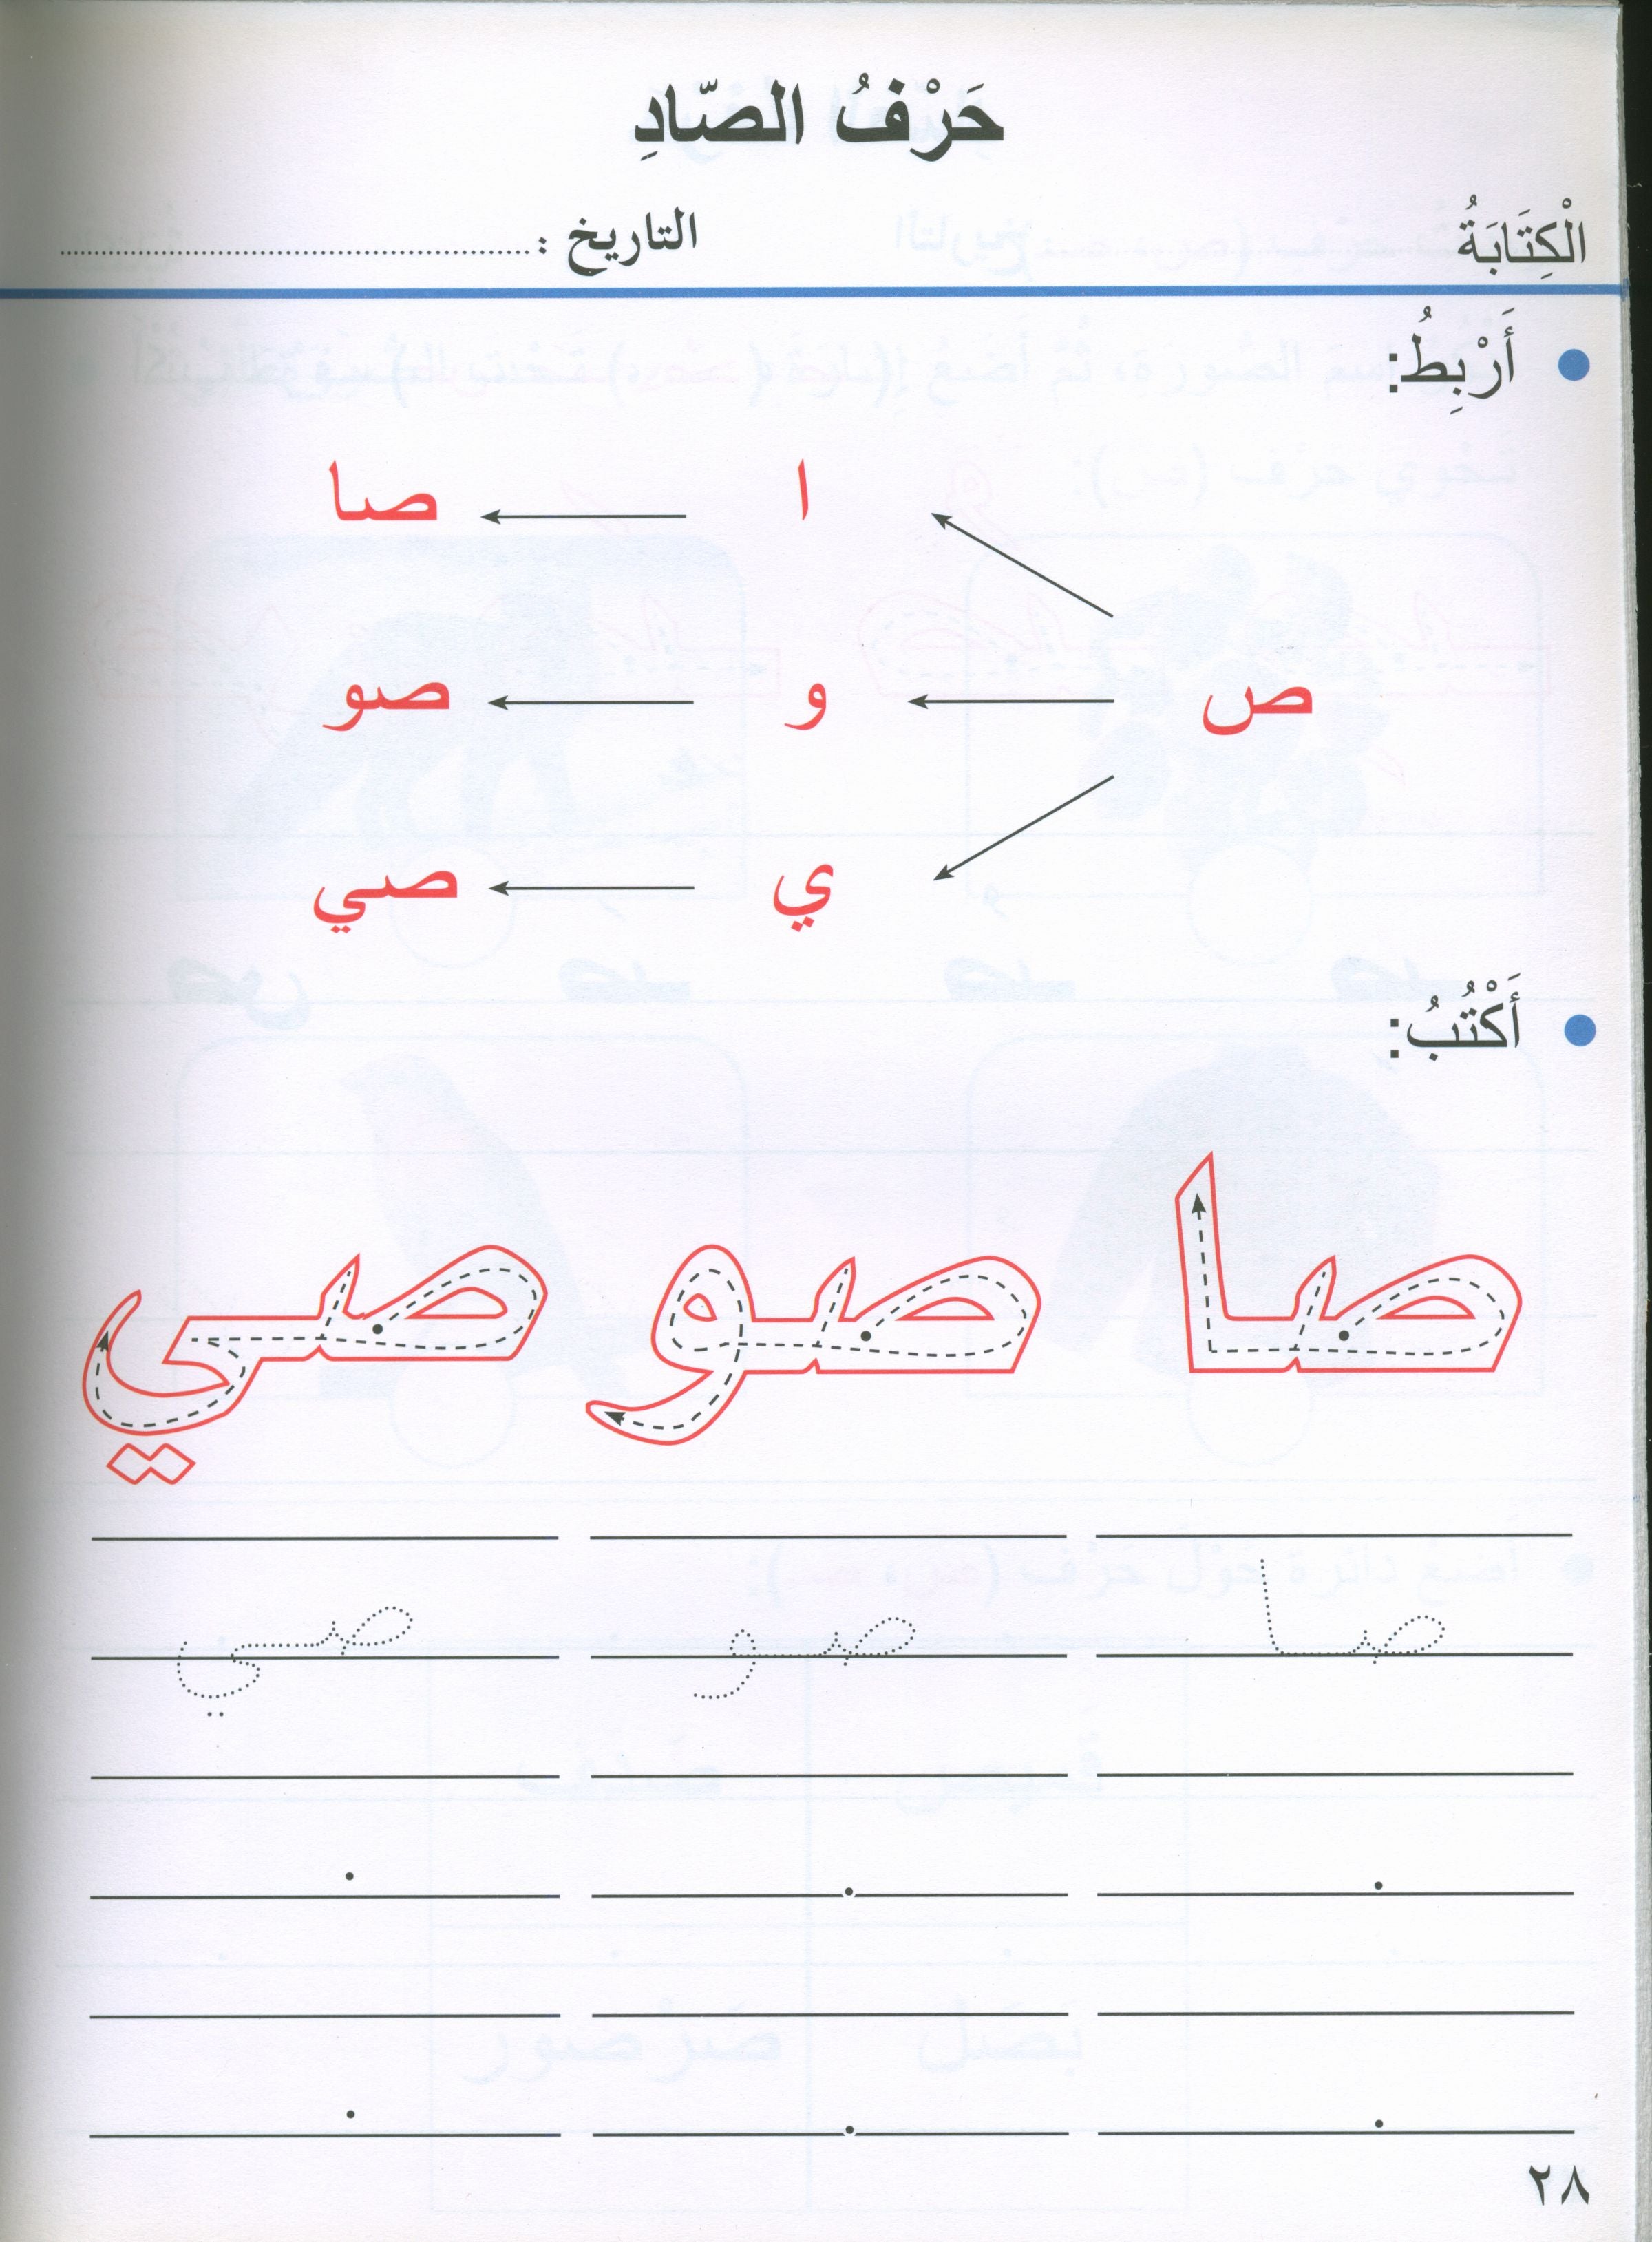 حَرْفُ الصّادِ
الْكِتَابَةُ التاريخ : ........................................
أَرْبِطُ:
ا صا
ص و صو
ي صي
أَكْتُبُ:
صا صو صي
صا صو صي
٢٨